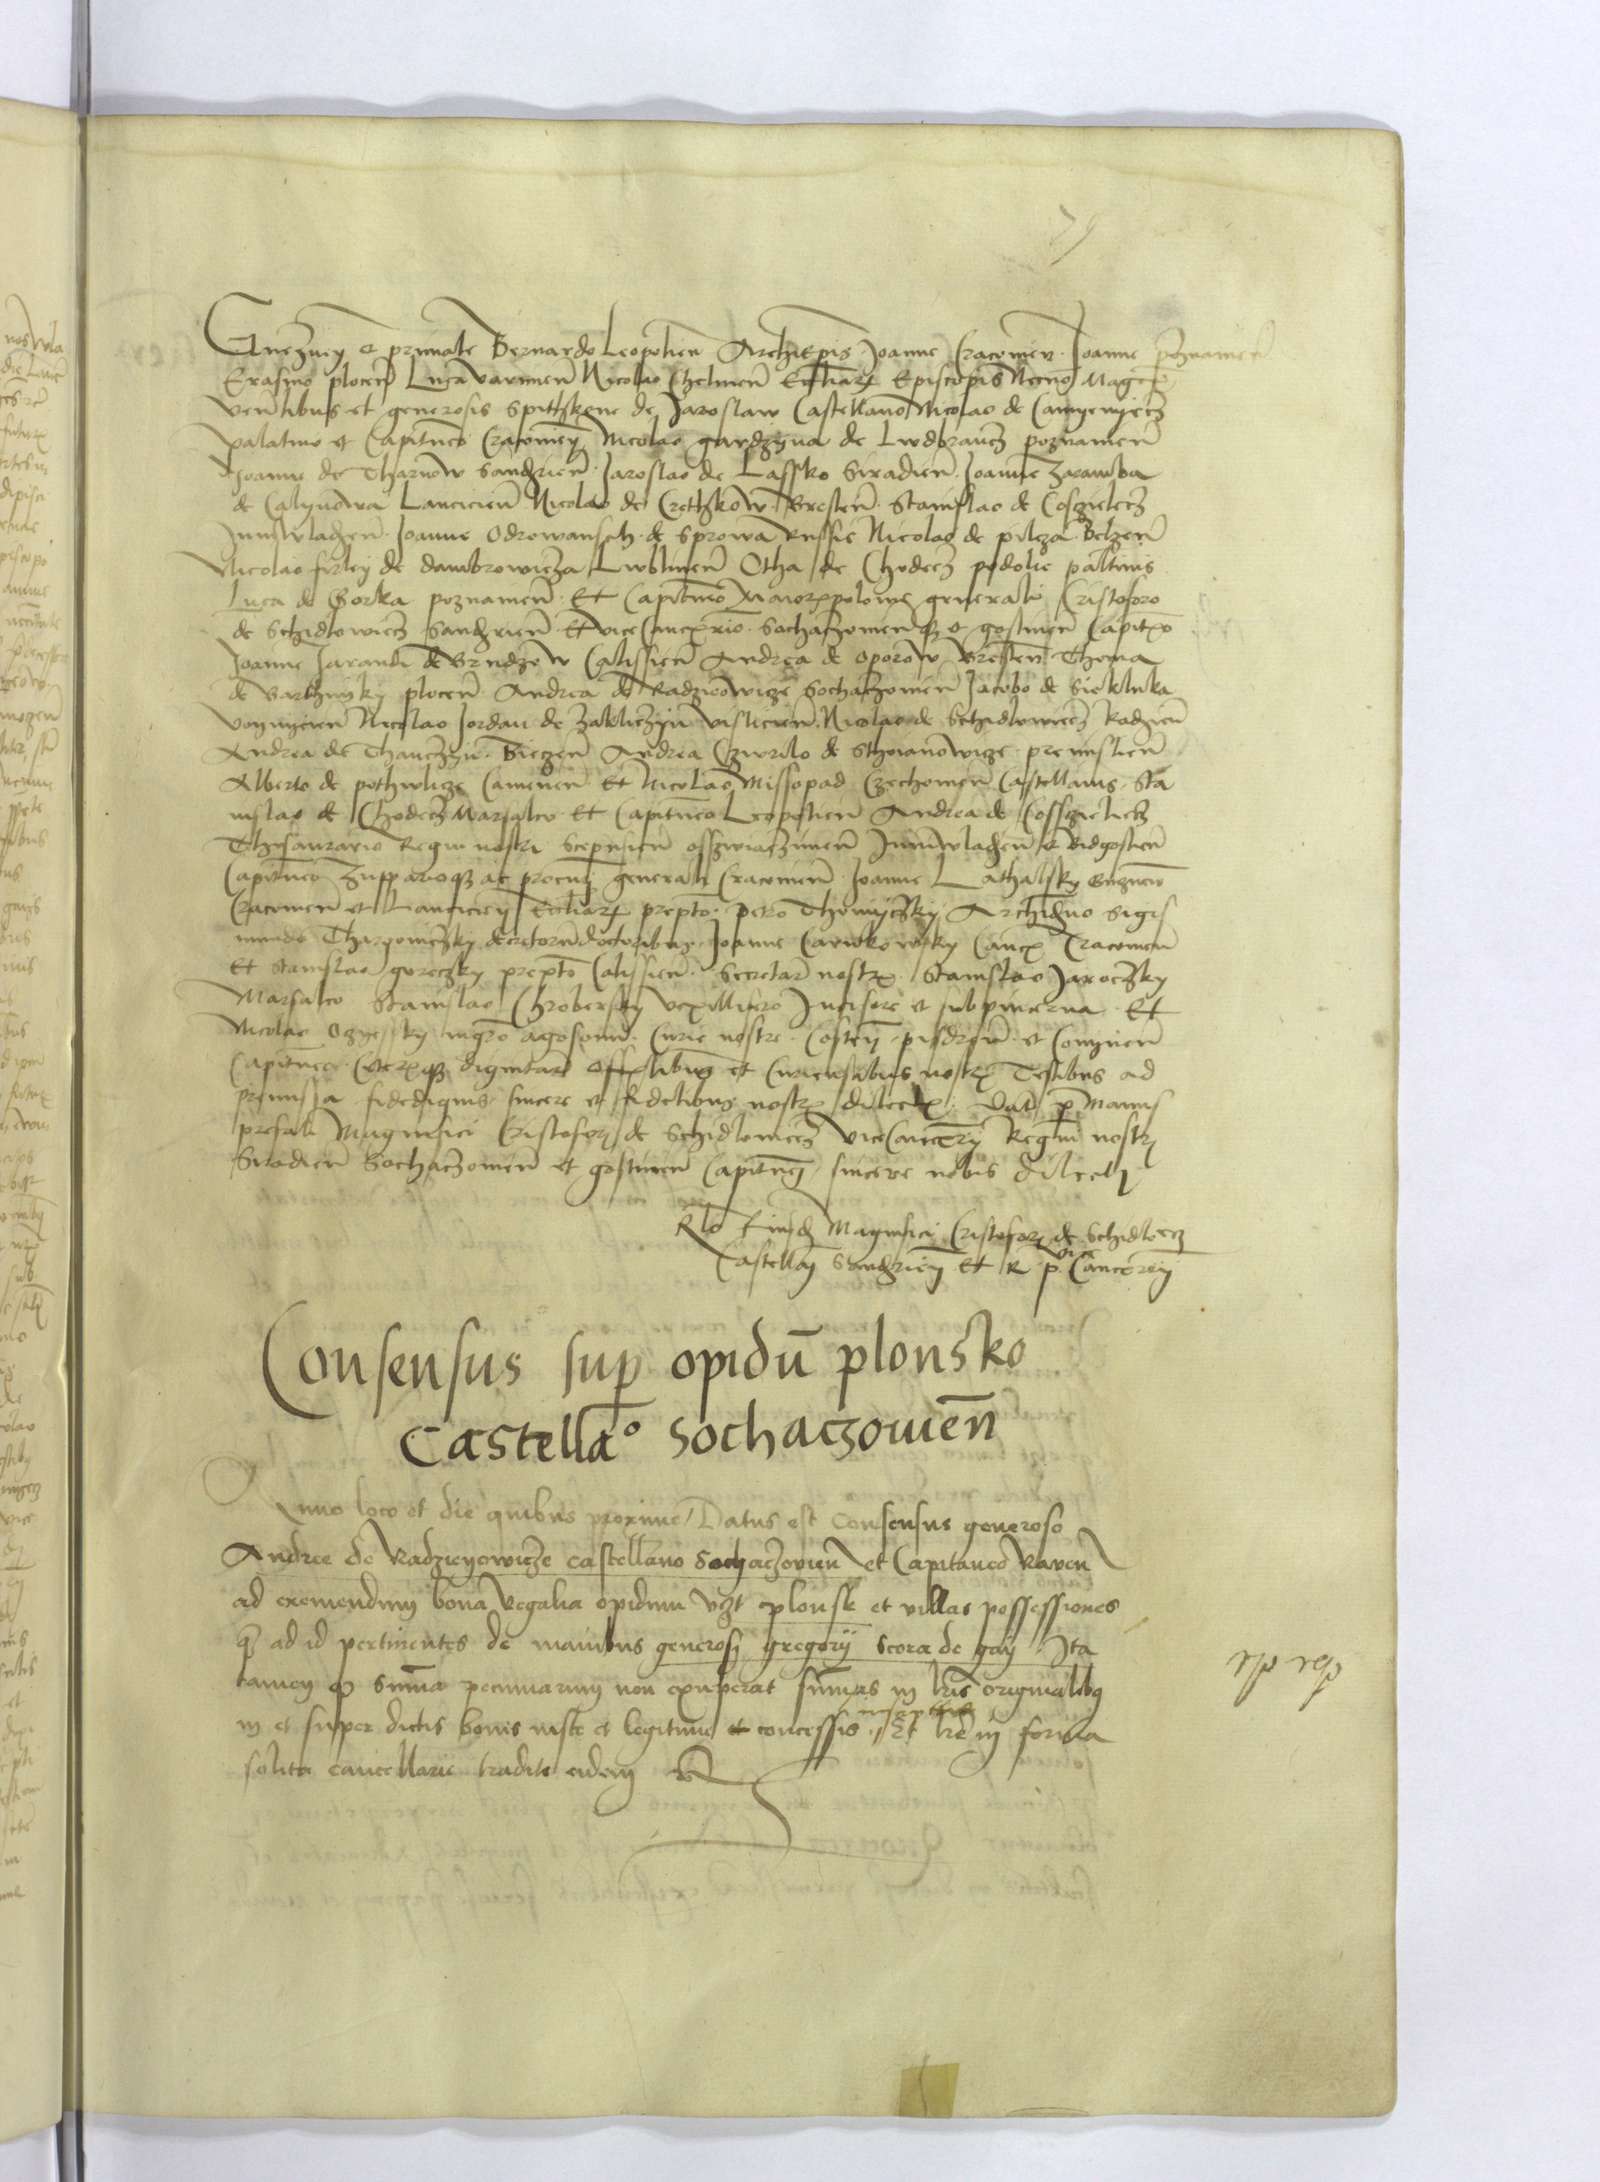 79
Gnezneñ et primate Bernardo Leopolieñ Archiep̄is Joanne Cracouieñ Joanne poznanieñ
Erasmo ploceñ Luca varmieñ Nicolao Chelmeñ Eccliarȝ Episcopis Necno Magcis
ven̄tibus et generosis Spithkone de Jaroslaw Castellano Nicolao de Camyenyecz
palatino et Capit̄neo Cracouieñ Nicolao gardzyna de Lwdbrancz poznanieñ
Joanne de Tharnow Sandzieñ Jaroslao de Lassko Siradieñ Joanne Zaramba
de Calynowa Lancicieñ Nicolao de Crethkow Bresteñ Stanislao de Coszyelecz
Juniwladieñ Joanne Odrowansch de Sprowa Russie Nicolao de pilcza Belzeñ
Nicolao firley de dambrowicza Lwblineñ Otha de Chodecz podolie palt̄inis
Luca de Gorka poznanieñ Et Capit̄neo Maiorȝ polonie generali Cristoforo
de Schidlowiecz Sandzieñ Et vice Cancx̄rio Sochaczouieñ qȝ et gostineñ Capitneo
Joanne Jarandi de Brudzew Calissieñ Andrea de Oporow Bresteñ Thoma
de Barthnisky ploceñ Andrea de Radzieowicze Sochaczouieñ Jacobo de Sieklnka
voyniceñ Nicolao Jordan de Zakliczyn vislicieñ Nicolao de Schidlowiecz Radzieñ
Andrea de Thanczyn Bieczeñ Andrea Czwrilo de Sthoianowicze premislieñ
Alberto de pothwlicze Cameneñ Et Nicolao Missopad Czechoueñ Castellanis Sta
nislao de Chodecz Marsalco Et Capitneo Leopolieñ Andrea de Cosszyelecz
Thesaurario Regni nostri Scepusieñ osszwiaczimeñ Juniwladieñ et Bidgostieñ
Capit̄neo Zupparioqȝ ac procuri generali Cracouieñ Joanne Lathalsky Gnzneñ
Cracouieñ et Lancicieñ Eccliarȝ prepto petro Thomiczky Archidno Sigis
mundo Thargowiczky decretorū doctoribus Joanne Carnkowsky Cancx̄ Cracouieñ
Et Stanislao goreczky prepto Calissieñ Secretar nostrȝ Stanislao Jaroczky
Marsalco Stanislao Chrobersky vexillifero Incisore et subpincerna Et
Nicolao Ozyessky mgro agosonū Curie nostre Costeñ pisdreñ et Conyneñ
Capitneo Ceterisqȝ dignitar Officialibus et Curiensibus nostrȝ Testibus ad
premissa fidedignis sincere et fidelibus nostrȝ dilectȝ Dat p Manus
prefati Magnifici Cristoferi de Schidlowiecz vice Cancerij Regni nostri
Siradieñ Sochaczouieñ et gostineñ Capitnei sincere nobis dilecti
Rlo Eiusdȝ Magnifici Cristoferi de Schidlowiecz
Castellani Sandzieñ Et R p vice Cancerij
Consensus sup opidū plonsko
Castellaᵒ Sochaczouieñ
Anno loco et die quibus proxime Datus est Consensus generoso
Andree de Radzieyowicze castellano Sochaczovieñ et Capitaneo Raveñ
ad exemendum bona regalia opidum vȝt plonsk et villas possessiones
qȝ ad id pertinentes de manibus generosi gregorij Scora de gay Ita
tamen qȝ Summa pecuniarum non exuperat sūmas in lris originalibus
inscptas
in et super dictis bonis iuste et legitime et concessis Et lre in forma
solita cancellarie tradite eidem